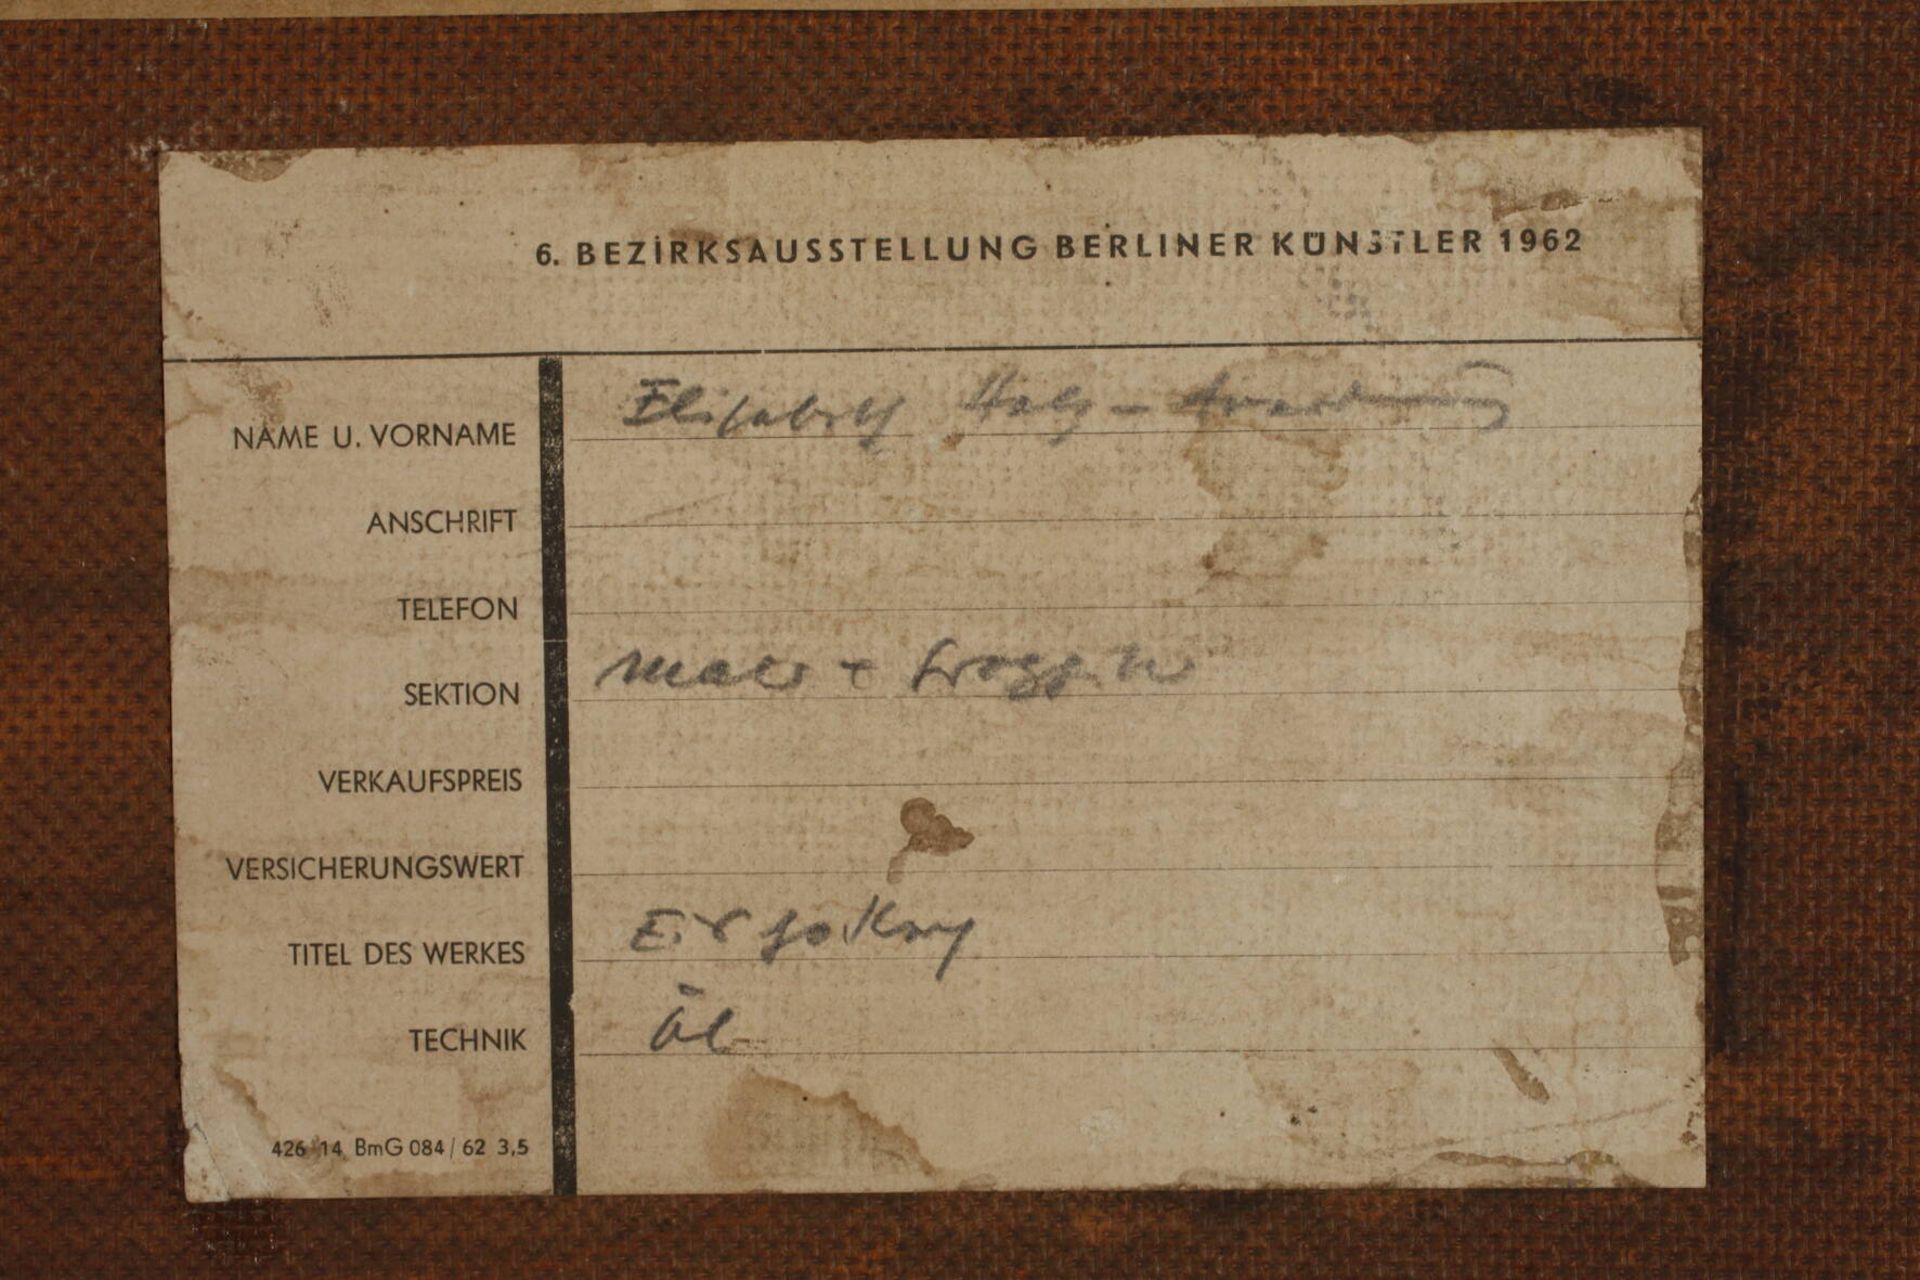 6. BEZIRKSAUSSTELLUNG BERLINER KÜNSTLER 1962
NAME U. VORNAME Elisabeth Holz -
ANSCHRIFT
TELEFON
SEKTION Maler +
VERKAUFSPREIS
VERSICHERUNGSWERT
TITEL DES WERKES
TECHNIK Öl
426 14 BmG 084/62 3,5